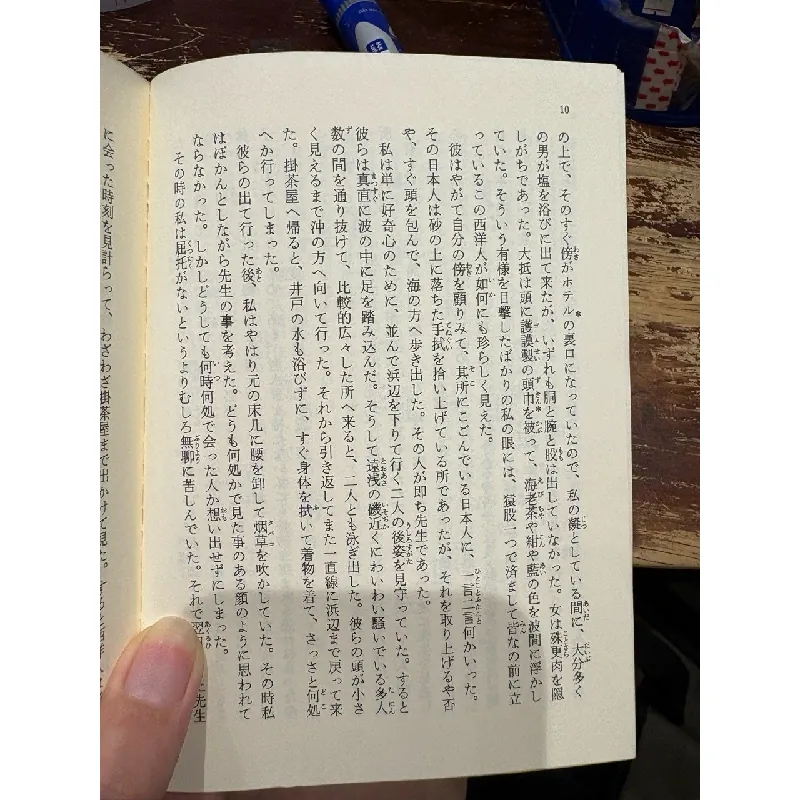 10
の上で、そのすぐ傍がホテルの裏口になっていたので、私の凝としている間に、大分多く
の男が塩を浴びに出て来たが、いずれも胴と腕と股は出していなかった。女は殊更肉を隠
しがちであった。大抵は頭に護謨製の頭巾を被って、海老茶や紺や藍の色を波間に浮かし
ていた。そういう有様を目撃したばかりの私の眼には、猿股一つで済まして皆なの前に立
っているこの西洋人が如何にも珍らしく見えた。
彼はやがて自分の傍を顧りみて、其所にこごんでいる日本人に、一言二言何かいった。
その日本人は砂の上に落ちた手拭を拾い上げている所であったが、それを取り上げるや否
や、すぐ頭を包んで、海の方へ歩き出した。その人が即ち先生であった。
私は単に好奇心のために、並んで浜辺を下りて行く二人の後姿を見守っていた。すると
彼らは真直に波の中に足を踏み込んだ。そうして遠浅の磯近くにわいわい騒いでいる多人
数の間を通り抜けて、比較的広々した所へ来ると、二人とも泳ぎ出した。彼らの頭が小さ
く見えるまで沖の方へ向いて行った。それから引き返してまた一直線に浜辺まで戻って来
た。掛茶屋へ帰ると、井戸の水も浴びずに、すぐ身体を拭いて着物を着て、さっさと何処
へか行ってしまった。
彼らの出て行った後、私はやはり元の床几に腰を卸して烟草を吹かしていた。その時私
はぽかんとしながら先生の事を考えた。どうも何処かで見た事のある顔のように思われて
ならなかった。しかしどうしても何時何処で会った人か想い出せずにしまった。
その時の私は屈托がないというよりむしろ無聊に苦しんでいた。それで翌 先生
に会った時刻を見計らって、わざわざ掛茶屋まで出かけて見た。